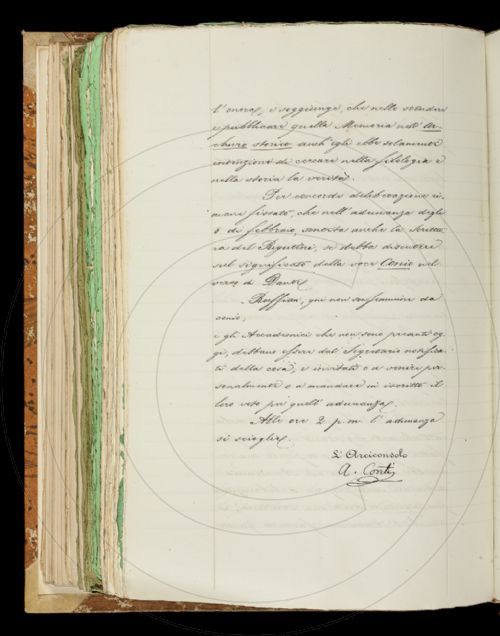 l'onore, e soggiunge, che nello scrivere
e pubblicare quella Memoria nell'Ar-
chivio storico anch'egli ebbe solamente
intenzione di cercare nella filologia e
nella storia la verità.
Per concorde deliberazione ri-
mane fissato, che nell'adunanza degli
8 di febbraio, smessa anche la lettu-
ra del Rigutini, si debba discutere
sul significato della voce Conio nel
verso di Dante
Ruffian, qui non son femmine da
conio;
e gli Accademici che non sono presenti og-
gi, debbano essere dal Segretario notifica-
ti della cosa, e invitati o a venire per-
sonalmente o a mandare in iscritto il
loro voto per quell'adunanza.
Alle ore 2 p. m. l'adunanza
si scioglie.
L'Arciconsolo
A. Conti